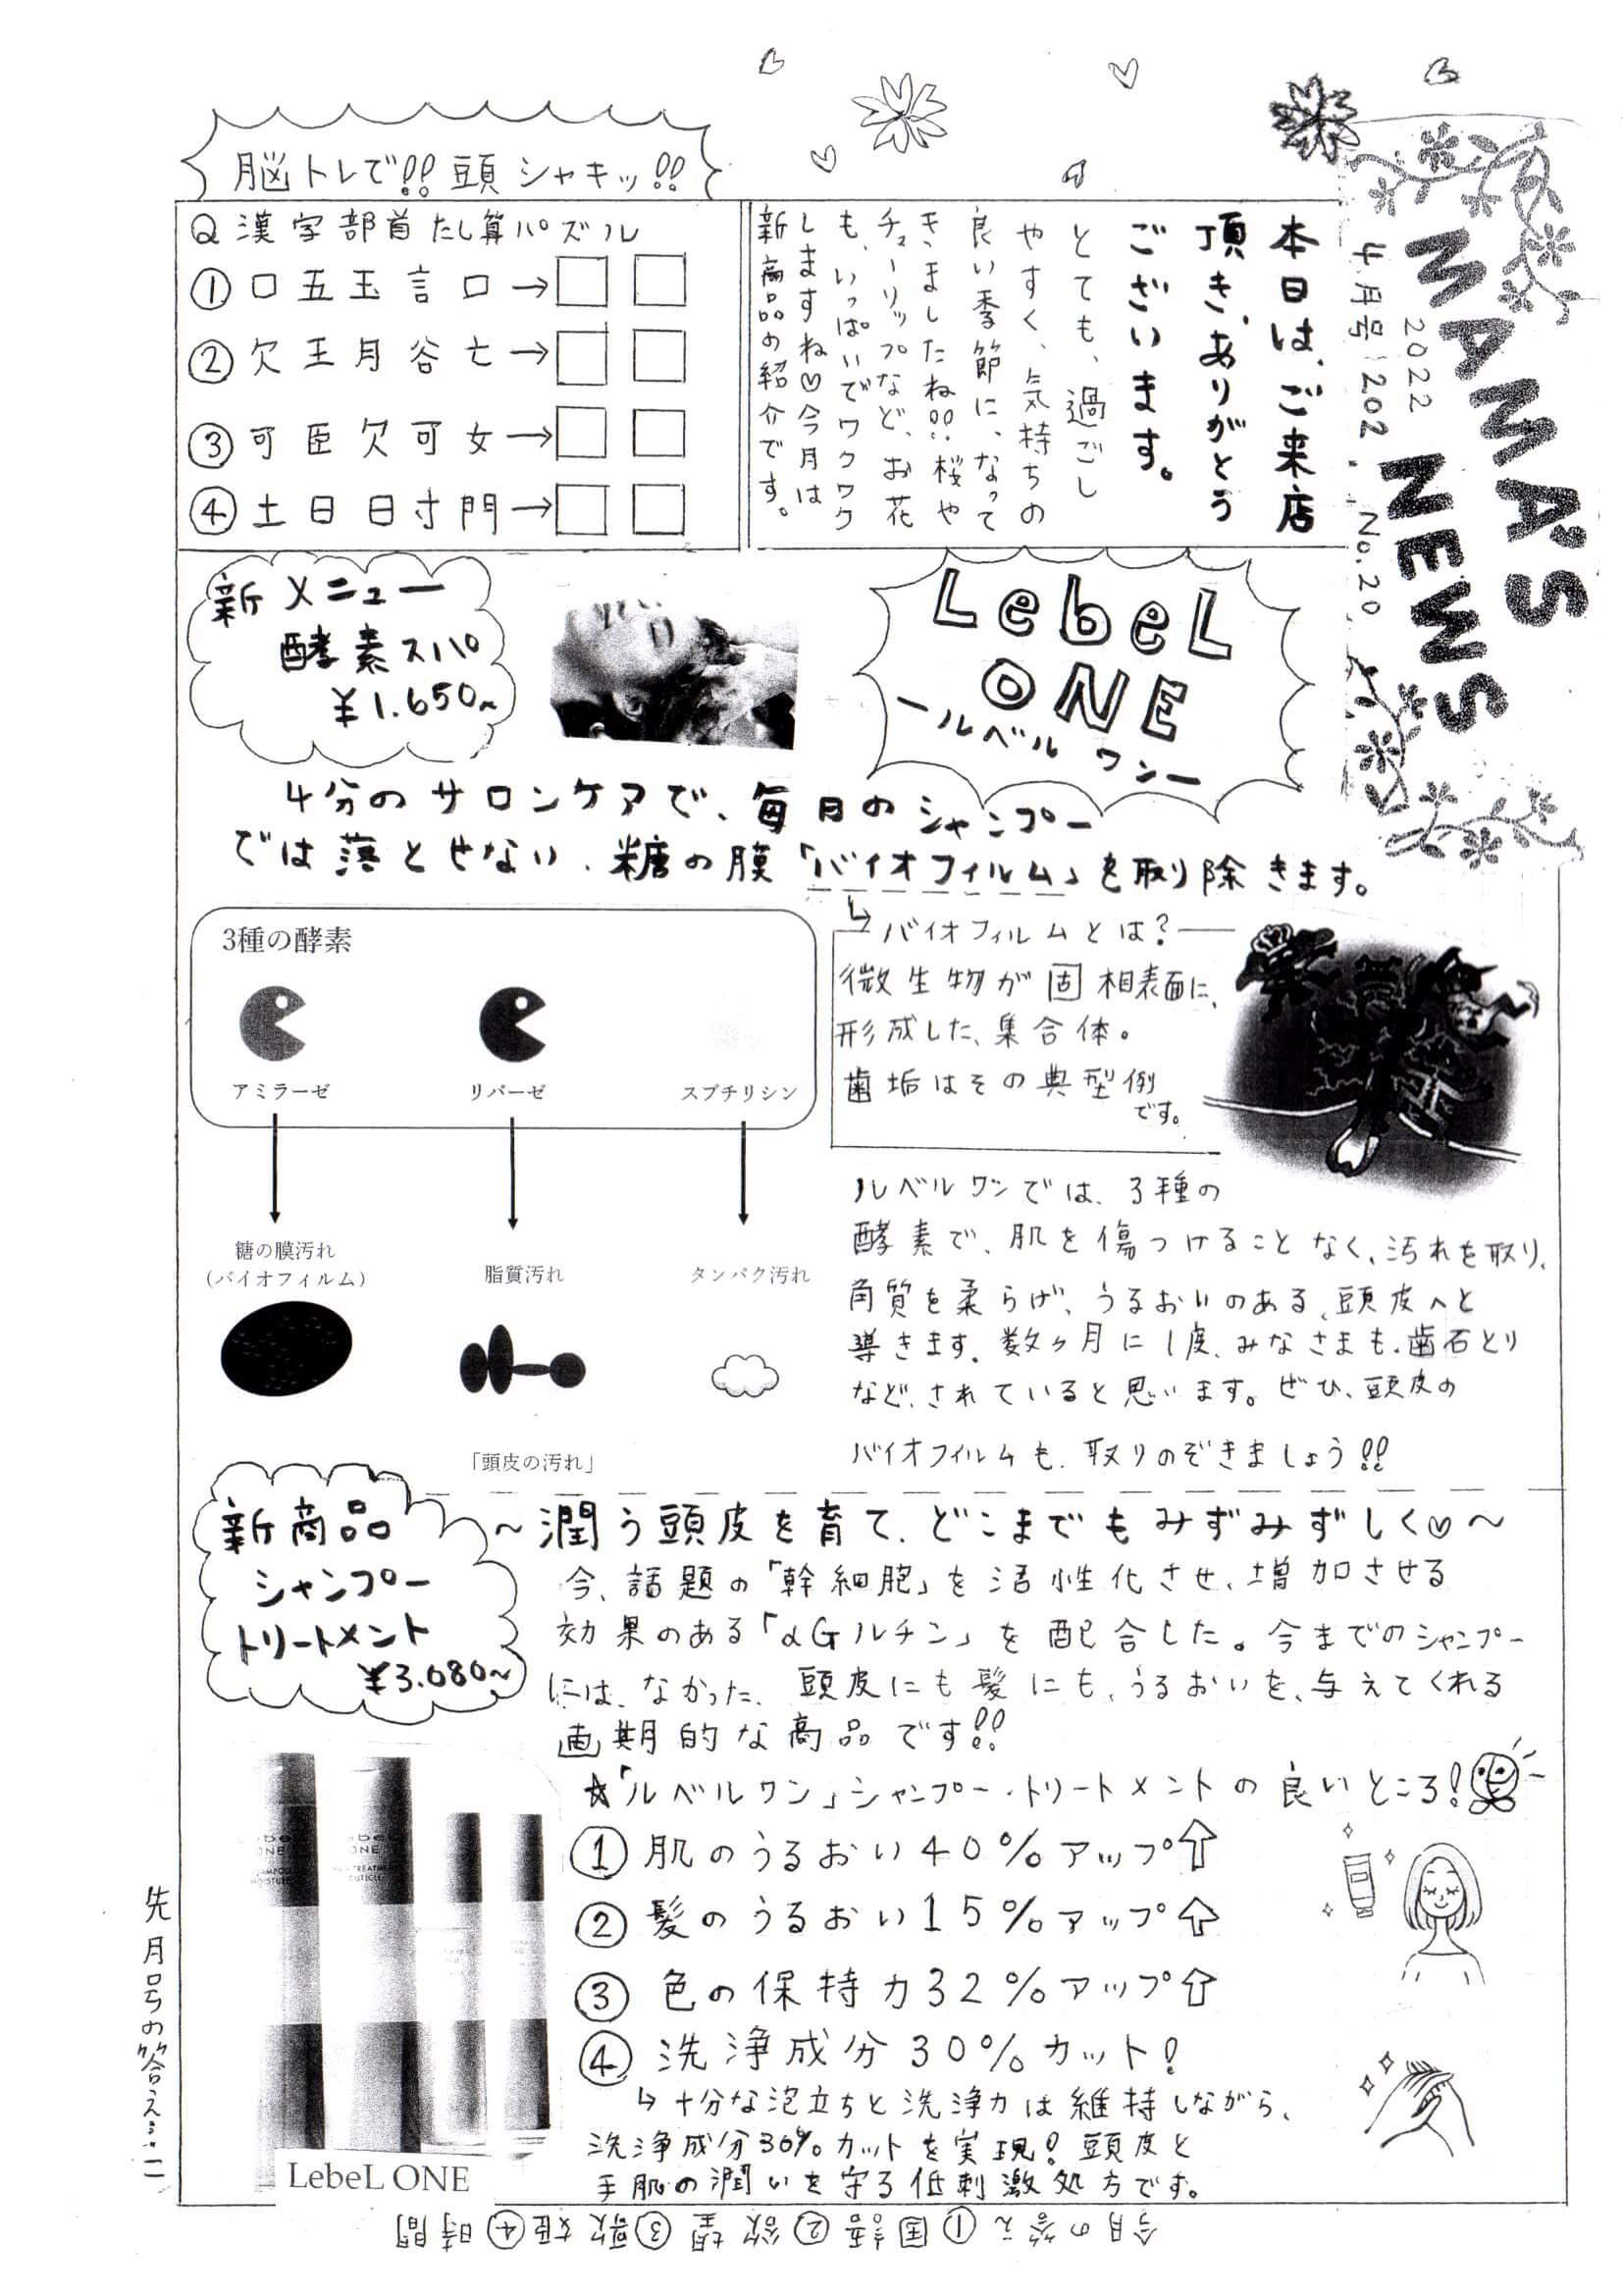 MAMA'S
NEWS
2022
4月号 202 No.20
本日は、ご来店
頂き、ありがとう
ございます。
とても、過ごし
やすく、気持ちの
良い季節に、なって
きましたね!!桜や
チューリップなど、お花
も、いっぱいでワクワク
しますね♡今月は
新商品の紹介です。
脳トレで!!頭シャキッ!!
Q漢字部首たし算パズル
①口五玉言口→□□
②欠王月谷亡→□□
③可臣欠可女→□□
④土日日寸門→□□
新メニュー
酵素スパ
¥1.650~
LebeL
ONE
ールベルワンー
4分のサロンケアで、毎日のシャンプー
では落とせない、糖の膜「バイオフィルム」を取り除きます。
3種の酵素
アミラーゼ
リパーゼ
スブチリシン
糖の膜汚れ
(バイオフィルム)
脂質汚れ
タンパク汚れ
「頭皮の汚れ」
バイオフィルムとは?
微生物が固相表面に、
形成した、集合体。
歯垢はその典型例
です。
ルベルワンでは、3種の
酵素で、肌を傷つけることなく、汚れを取り、
角質を柔らげ、うるおいのある、頭皮へと
導きます。数ヶ月に1度、みなさまも、歯石とり
など、されていると思います。ぜひ、頭皮の
バイオフィルムも、取りのぞきましょう!!
新商品
シャンプー
トリートメント
¥3.080~
~潤う頭皮を育て、どこまでもみずみずしく♡~
今、話題の「幹細胞」を活性化させ、増加させる
効果のある「αGルチン」を配合した。今までのシャンプー
には、なかった、頭皮にも髪にも、うるおいを、与えてくれる
画期的な商品です!!
☆「ルベルワン」シャンプー・トリートメントの良いところ!
①肌のうるおい40%アップ⇧
②髪のうるおい15%アップ⇧
③色の保持力32%アップ⇧
④洗浄成分30%カット!
↳十分な泡立ちと洗浄力は維持しながら、
洗浄成分30%カットを実現!頭皮と
手肌の潤いを守る低刺激処方です。
LebeL ONE
先月号の答え…二
今月の答え①国語②欲望③歌姫④時間